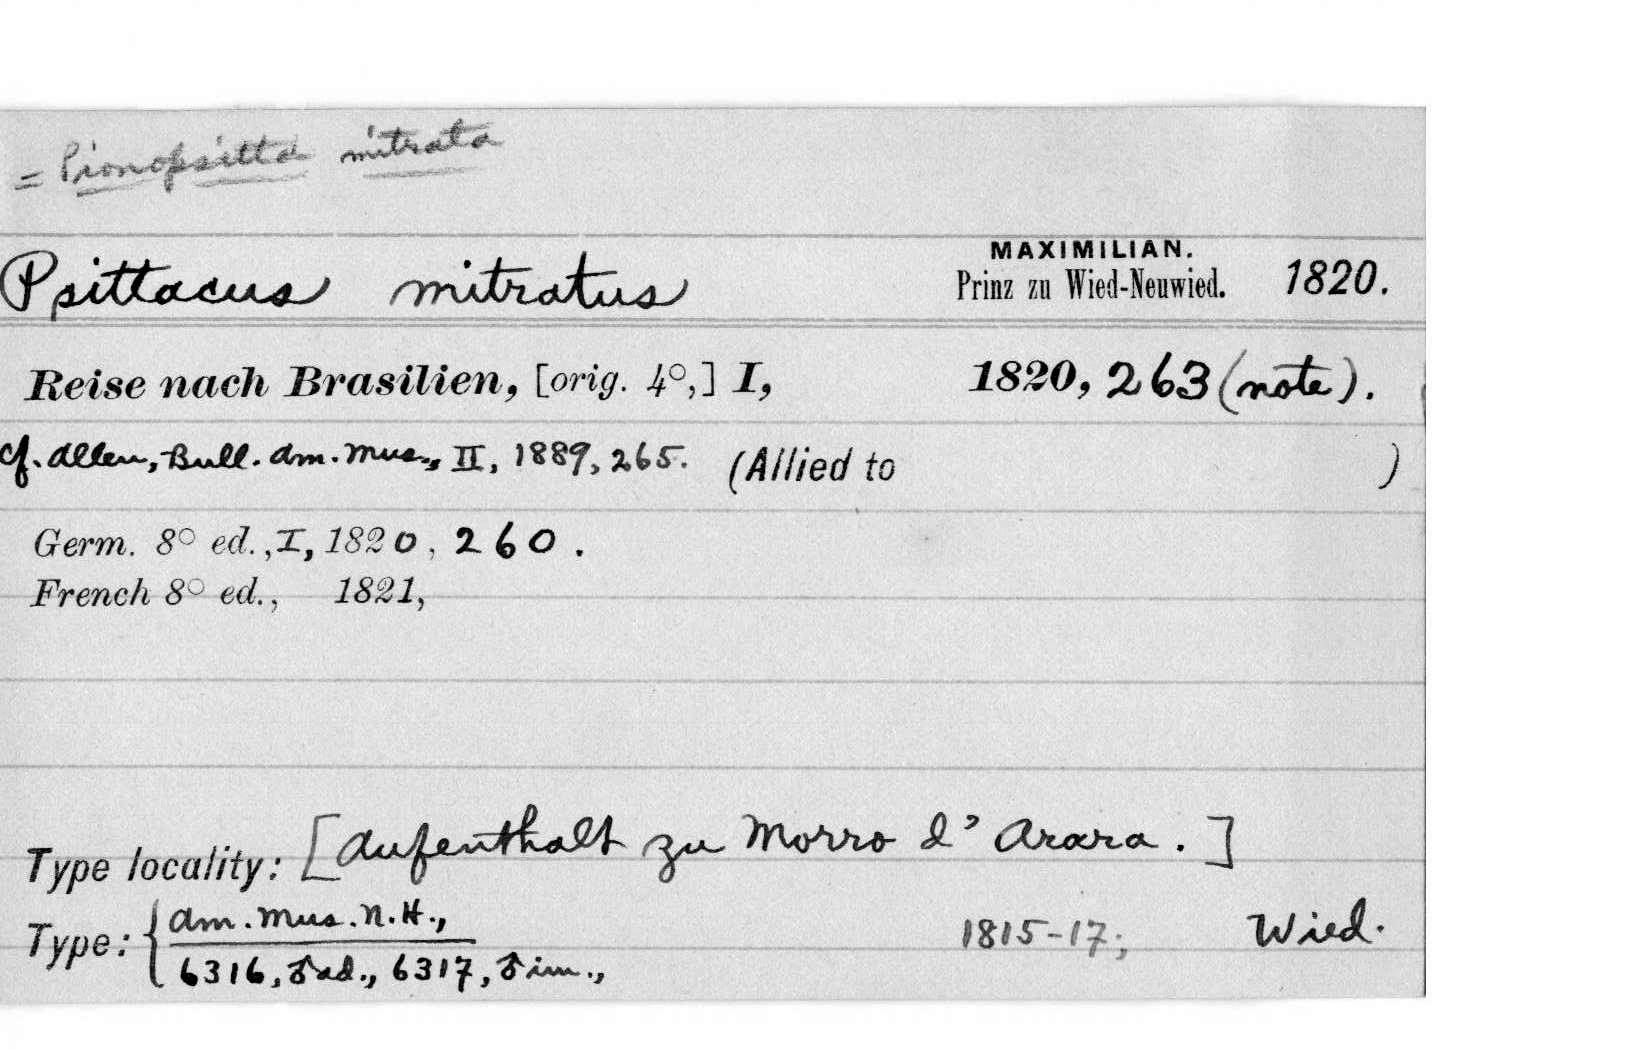 = Pionopsitta mitrata
Psittacus mitratus MAXIMILIAN. Prinz zu Wied-Neuwied. 1820.
Reise nach Brasilien, [orig. 4°,] I, 1820, 263 (note).
cf. Allen, Bull. Am. Mus., II, 1889, 265. (Allied to )
Germ. 8° ed., I, 1820, 260.
French 8° ed., 1821,
Type locality: [Aufenthalt zu Morro d'Arara.]
Type: { Am. Mus. N.H., 1815-17; Wied.
6316, ♂ ad., 6317, ♂ im.,